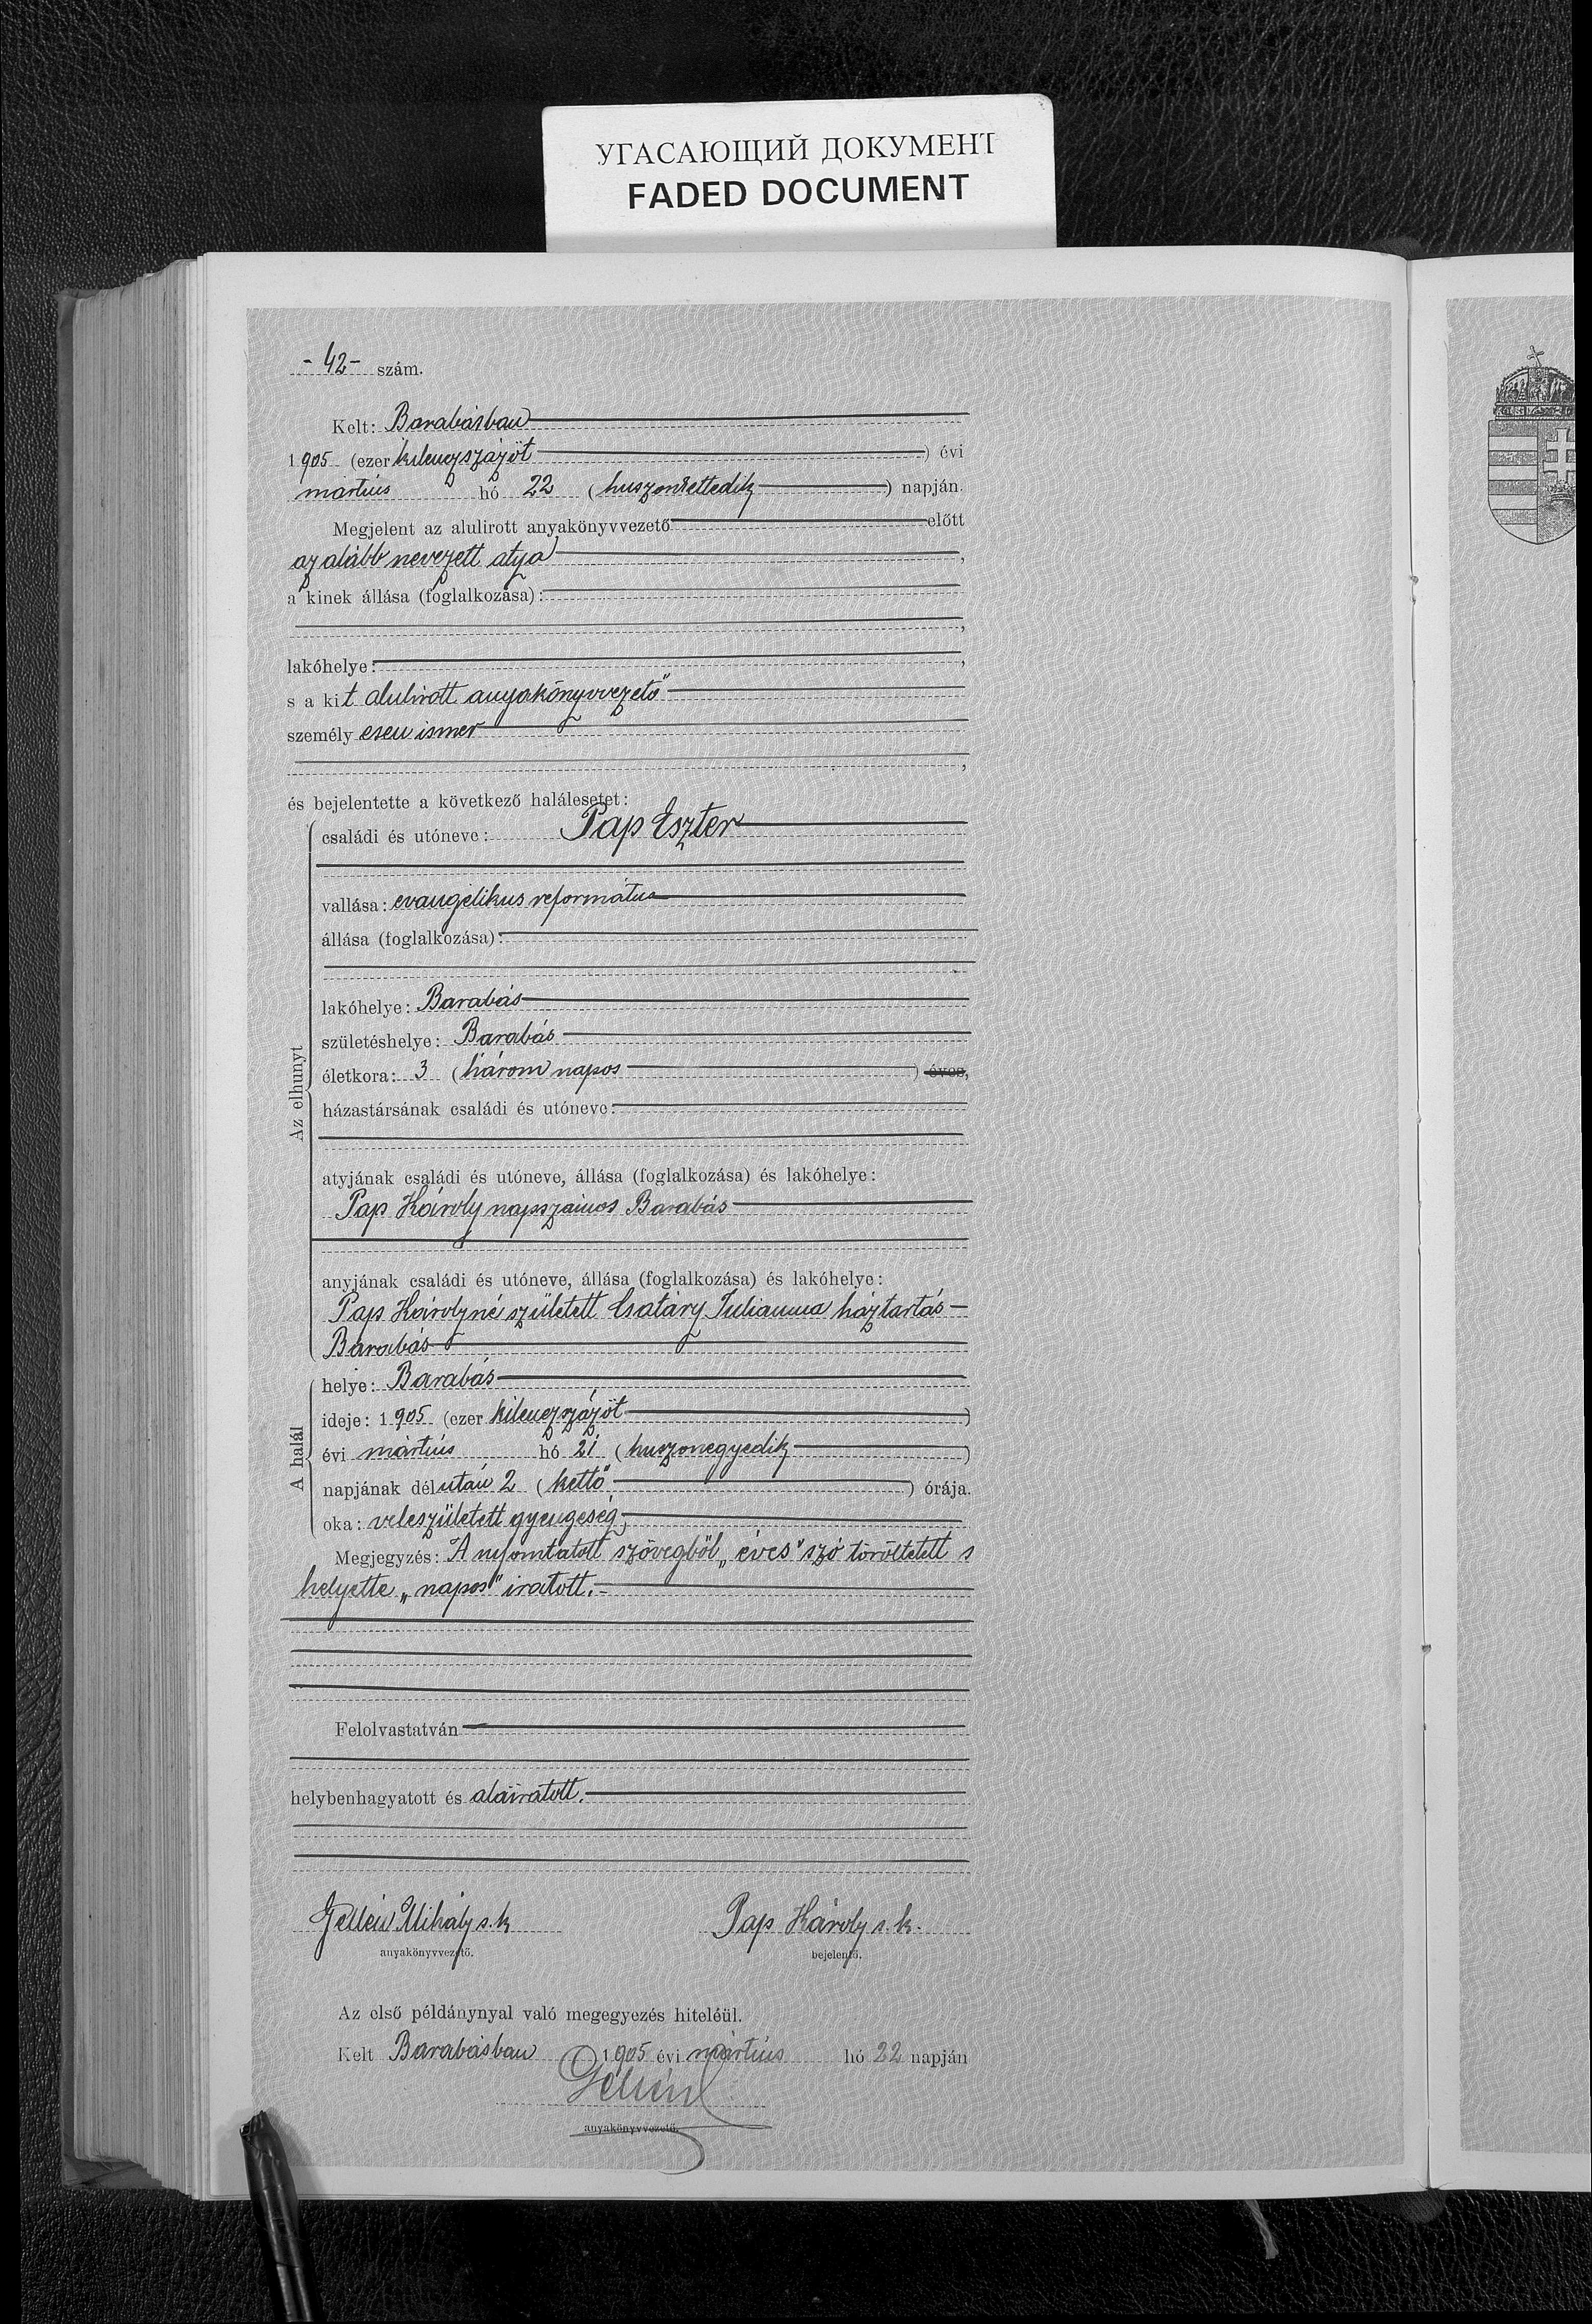 УГАСАЮЩИЙ ДОКУМЕНТ
FADED DOCUMENT
- 42 - szám.
Kelt: Barabásban
1905 (ezer kilenczszázöt ) évi
mártius hó 22 (huszonkettedik ) napján.
Megjelent az alulirott anyakönyvvezető előtt
az alább nevezett atya ,
a kinek állása (foglalkozása):
,
lakóhelye: ,
s a kit alulirott anyakönyvvezető
személyesen ismer
,
és bejelentette a következő halálesetet:
Az elhunyt
családi és utóneve: Pap Eszter
vallása: evangélikus református
állása (foglalkozása):
lakóhelye: Barabás
születéshelye: Barabás
életkora: 3 (három napos ) éves,
házastársának családi és utóneve:
atyjának családi és utóneve, állása (foglalkozása) és lakóhelye:
Pap Károly napszámos Barabás
anyjának családi és utóneve, állása (foglalkozása) és lakóhelye:
Pap Károlyné született Csatáry Julianna háztartás –
Barabás
A halál
helye: Barabás
ideje: 1905 (ezer kilenczszázöt )
évi mártius hó 21 (huszonegyedik )
napjának délután 2 (kettő ) órája.
oka: veleszületett gyengeség;
Megjegyzés: A nyomtatott szövegből „éves" szó töröltetett s
helyette „napos" iratott. –
Felolvastatván
helybenhagyatott és aláiratott.
Gellén Mihály s. k Pap Károly s. k.
anyakönyvvezető. bejelentő.
Az első példánynyal való megegyezés hiteléül.
Kelt Barabásban 1905 évi mártius hó 22 napján
Gellén
anyakönyvvezető.